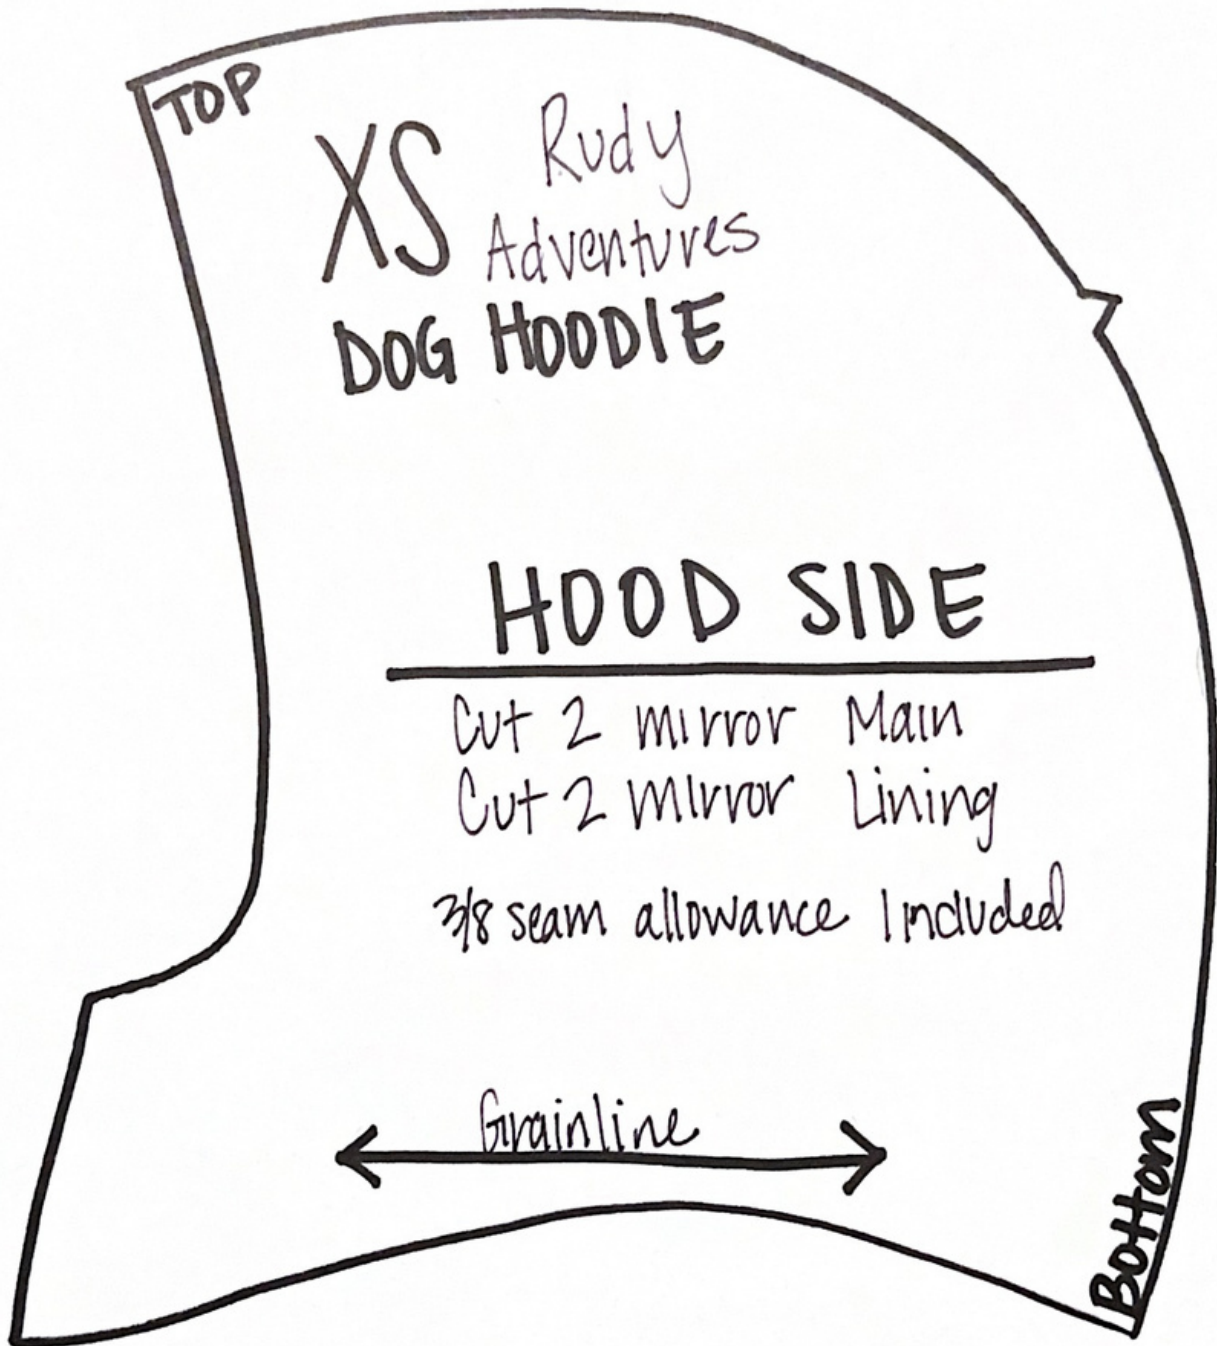 TOP
XS Rudy
Adventures
DOG HOODIE
HOOD SIDE
Cut 2 mirror Main
Cut 2 mirror Lining
3/8 seam allowance Included
Grainline
Bottom